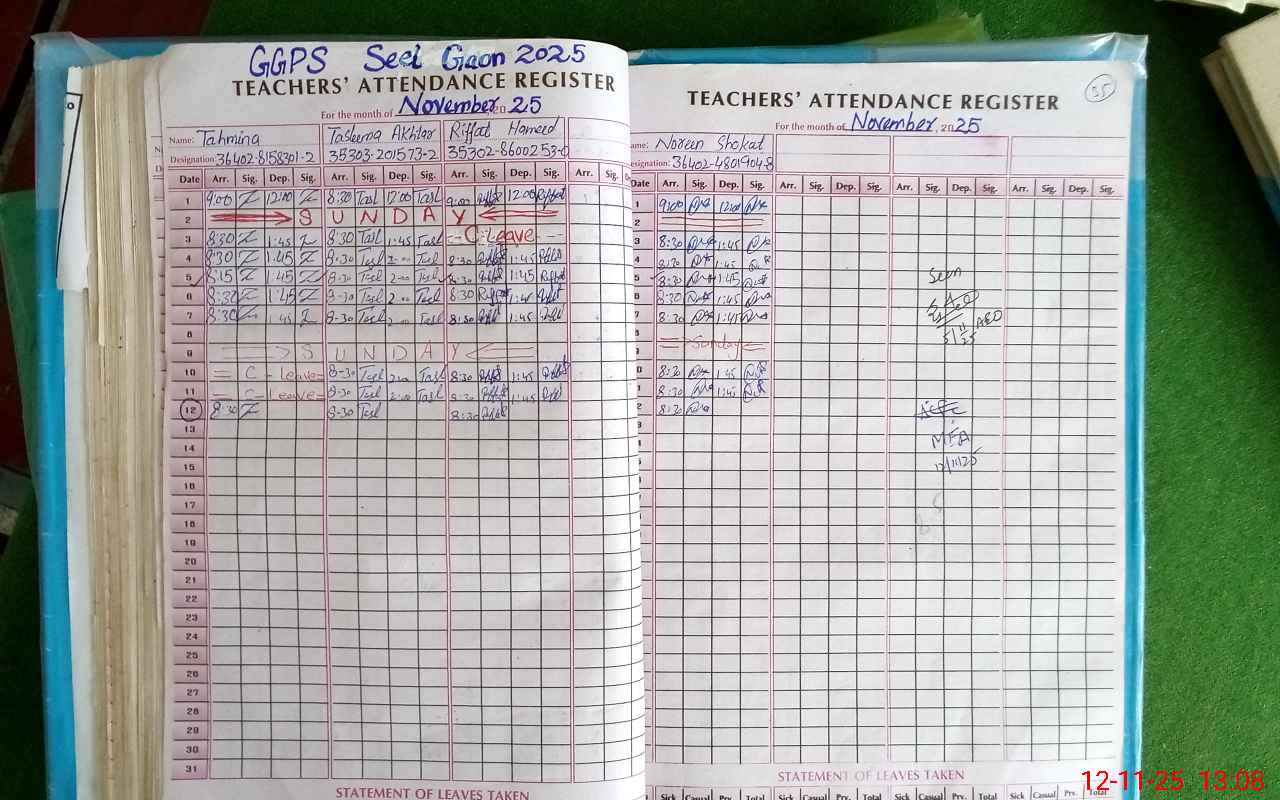 GGPS Seel Gaon 2025
TEACHERS' ATTENDANCE REGISTER
For the month of November, 2025
Name: Tahmina Tasleema Akhtar Riffat Hameed
Designation: 36402-8158301-2 35303-201573-2 35302-8600253-0
Date Arr. Sig. Dep. Sig. Arr. Sig. Dep. Sig. Arr. Sig. Dep. Sig. Arr. Sig.
1 9:00 Z 12:00 Z 8:30 Tasl 12:00 Tasl 9:00 12:00 Riffat
2 S U N D A Y
3 8:30 Z 1:45 Z 8:30 Tasl 1:45 Tasl C-Leave
4 8:30 Z 1:45 Z 8-30 Tasl 2-00 Tasl 8:30 1:45
5 8:15 Z 1:45 Z 8-30 Tasl 2-00 Tasl 8:30 1:45
6 8:30 Z 1:45 Z 8-30 Tasl 2-00 Tasl 8:30 1:45
7 8:30 Z 1:45 Z 8-30 Tasl 2-00 Tasl 8:30 1:45
8
9 S U N D A Y
10 = C - Leave = 8-30 Tasl 2-00 Tasl 8:30 1:45
11 = C - Leave = 8-30 Tasl 2:00 Tasl 8:30 1:45
12 8:30 Z 8-30 Tasl 8:30
13
14
15
16
17
18
19
20
21
22
23
24
25
26
27
28
29
30
31
STATEMENT OF LEAVES TAKEN
35
TEACHERS' ATTENDANCE REGISTER
For the month of November, 2025
ame: Noreen Shokat
esignation: 36402-4801904-8
Arr. Sig. Dep. Sig. Arr. Sig. Dep. Sig. Arr. Sig. Dep. Sig. Arr. Sig. Dep. Sig.
1 9:00 12:00
2
3 8:30 1:45
4 8:30 1:45
5 8:30 1:45
6 8:30 1:45
7 8:30 1:45
8
9 Sunday
0 8:30 1:45
1 8:30 1:45
2 8:30
Seen
5/11/25 AEO
MEA
12/11/25
STATEMENT OF LEAVES TAKEN
Sick Casual Prv. Total Sick Casual Prv. Total Sick Casual Prv. Total Sick Casual Prv. Total
12-11-25 13:08